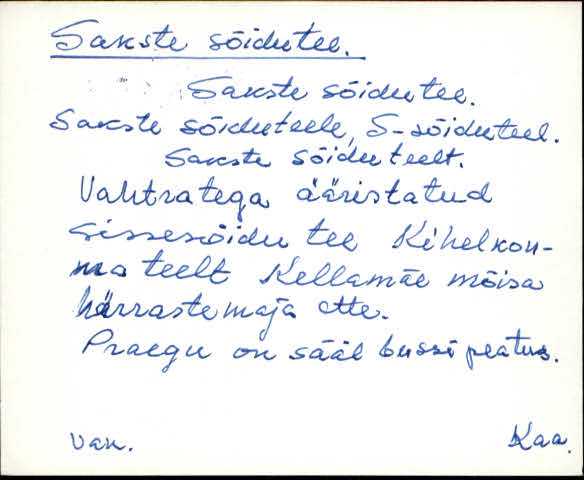 Sakste sõidutee.
Sakste sõidutee.
Sakste sõiduteele, S-sõiduteel.
Sakste sõiduteelt.
Vahtratega ääristatud
sissesõidu tee Kihelkon-
na teelt Kellamäe mõisa
härrastemaja ette.
Praegu on sääl bussi peatus.
van. Kaa.